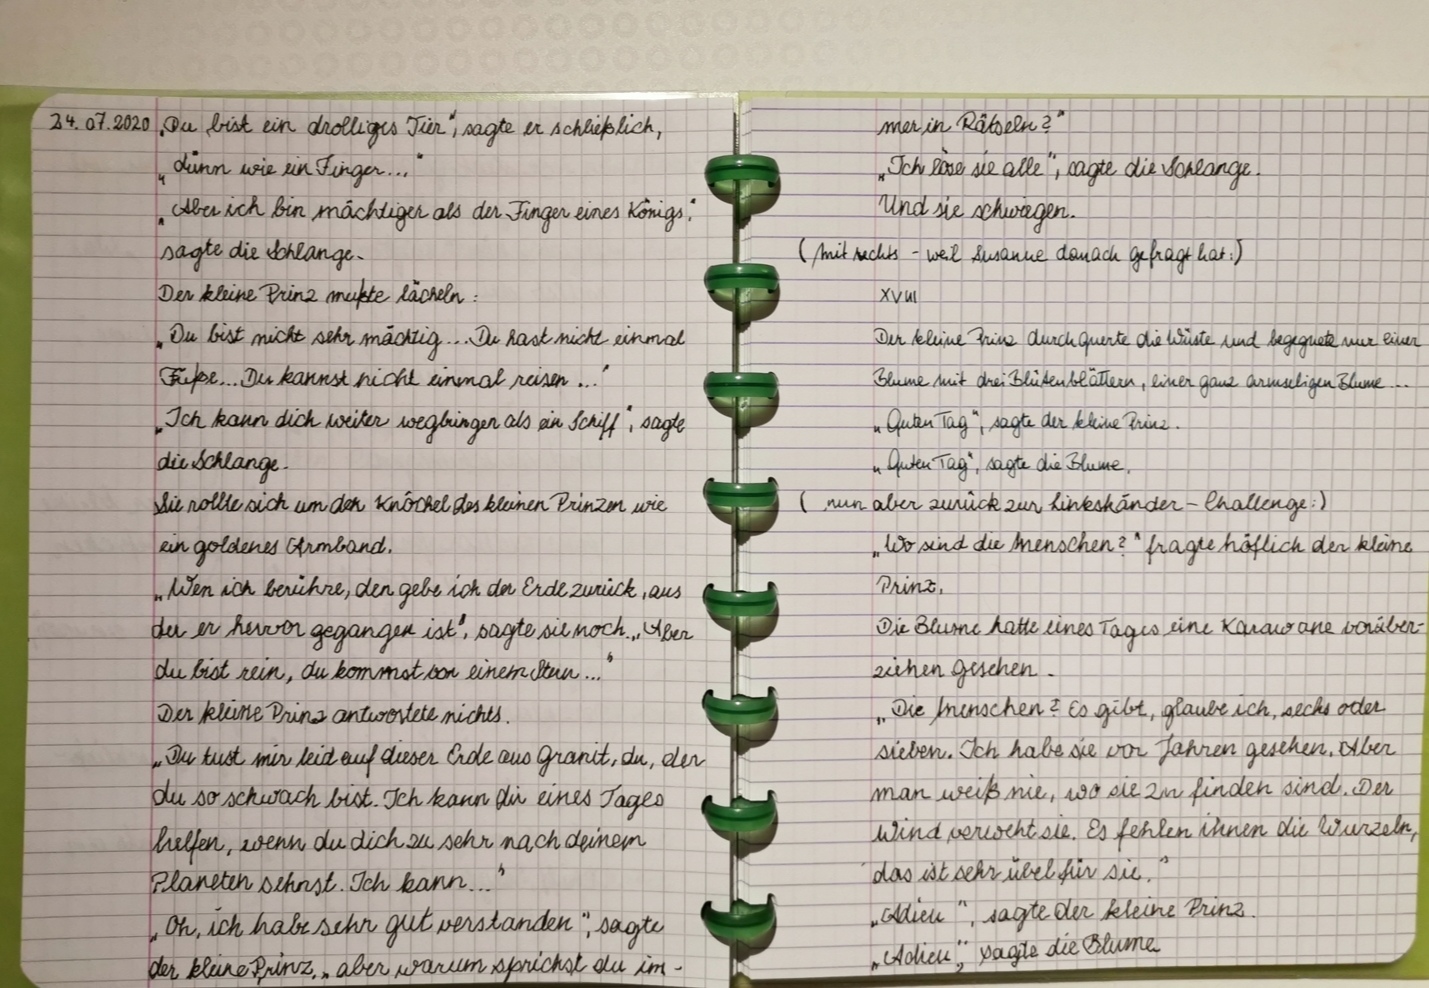 24.07.2020 „Du bist ein drolliges Tier", sagte er schließlich,
„dünn wie ein Finger..."
„Aber ich bin mächtiger als der Finger eines Königs",
sagte die Schlange.
Der kleine Prinz mußte lächeln:
„Du bist nicht sehr mächtig... Du hast nicht einmal
Füße... Du kannst nicht einmal reisen ..."
„Ich kann dich weiter wegbringen als ein Schiff", sagte
die Schlange.
Sie rollte sich um den Knöchel des kleinen Prinzen wie
ein goldenes Armband.
„Wen ich berühre, den gebe ich der Erde zurück, aus
der er hervorgegangen ist", sagte sie noch. „Aber
du bist rein, du kommst von einem Stern ..."
Der kleine Prinz antwortete nichts.
„Du tust mir leid auf dieser Erde aus Granit, du, der
du so schwach bist. Ich kann dir eines Tages
helfen, wenn du dich zu sehr nach deinem
Planeten sehnst. Ich kann..."
„Oh, ich habe sehr gut verstanden", sagte
der kleine Prinz, „aber warum sprichst du im-
mer in Rätseln?"
„Ich löse sie alle", sagte die Schlange.
Und sie schwiegen.
(mit rechts - weil Susanne danach gefragt hat:)
XVIII
Der kleine Prinz durchquerte die Wüste und begegnete nur einer
Blume mit drei Blütenblättern, einer ganz armseligen Blume...
„Guten Tag", sagte der kleine Prinz.
„Guten Tag", sagte die Blume.
(nun aber zurück zur Linkshänder-Challenge:)
„Wo sind die Menschen?" fragte höflich der kleine
Prinz.
Die Blume hatte eines Tages eine Karawane vorüber-
ziehen gesehen.
„Die Menschen? Es gibt, glaube ich, sechs oder
sieben. Ich habe sie vor Jahren gesehen. Aber
man weiß nie, wo sie zu finden sind. Der
Wind verweht sie. Es fehlen ihnen die Wurzeln,
das ist sehr übel für sie."
„Adieu", sagte der kleine Prinz.
„Adieu", sagte die Blume